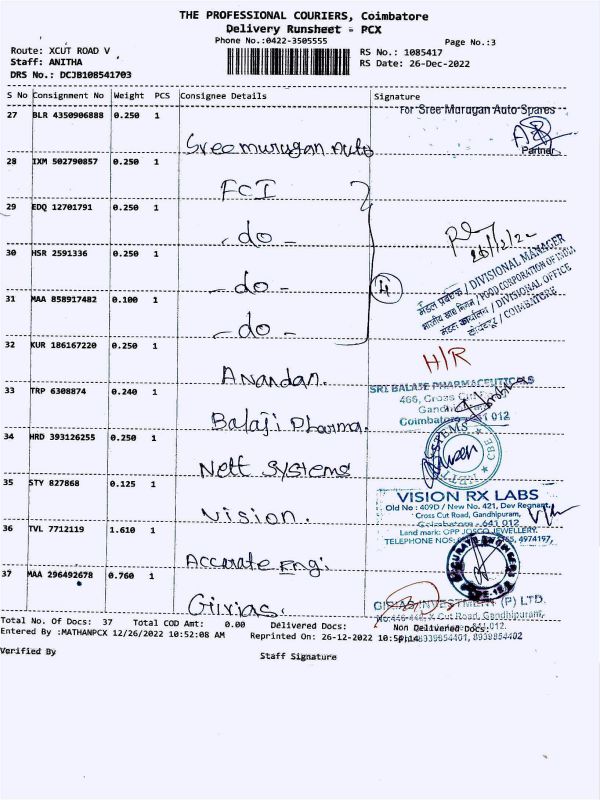 THE PROFESSIONAL COURIERS, Coimbatore
Delivery Runsheet - PCX
Phone No.:0422-3505555
Page No.:3
Route: XCUT ROAD V
RS No.: 1085417
Staff: ANITHA
RS Date: 26-Dec-2022
DRS No.: DCJB108541703
S No Consignment No Weight PCS Consignee Details Signature
27 BLR 4350906888 0.250 1
For Sree Murugan Auto Spares
Sree murugan Auto
Partner
28 IXM 502790857 0.250 1
FCI
29 EDQ 12701791 0.250 1
- do -
26/12/22
30 HSR 2591336 0.250 1
- do -
4
मंडल प्रबंधक / DIVISIONAL MANAGER
भारतीय खाद्य निगम / FOOD CORPORATION OF INDIA
मंडल कार्यालय / DIVISIONAL OFFICE
/ COIMBATORE
31 MAA 858917482 0.100 1
- do -
32 KUR 186167220 0.250 1
H/R
Anandan.
SRI BALAJI PHARMACEUTICALS
466, Cross
33 TRP 6308874 0.240 1
Balaji Pharma.
34 HRD 393126255 0.250 1
Nett Systems
35 STY 827868 0.125 1
VISION RX LABS
Old No : 409D / New No. 421, Dev Regnant,
Cross Cut Road, Gandhipuram,
Coimbatore - 641 012
Land mark: OPP JOSCO JEWELLERY
Vision.
36 TVL 7712119 1.610 1
Accurate Engi.
37 MAA 296492678 0.760 1
Girias.
GIRIAS INVESTMENT (P) LTD.
Cut Road, Gandhipuram,
Total No. Of Docs: 37 Total COD Amt: 0.00 Delivered Docs: Non Delivered Docs:
Entered By :MATHANPCX 12/26/2022 10:52:08 AM Reprinted On: 26-12-2022
Verified By
Staff Signature